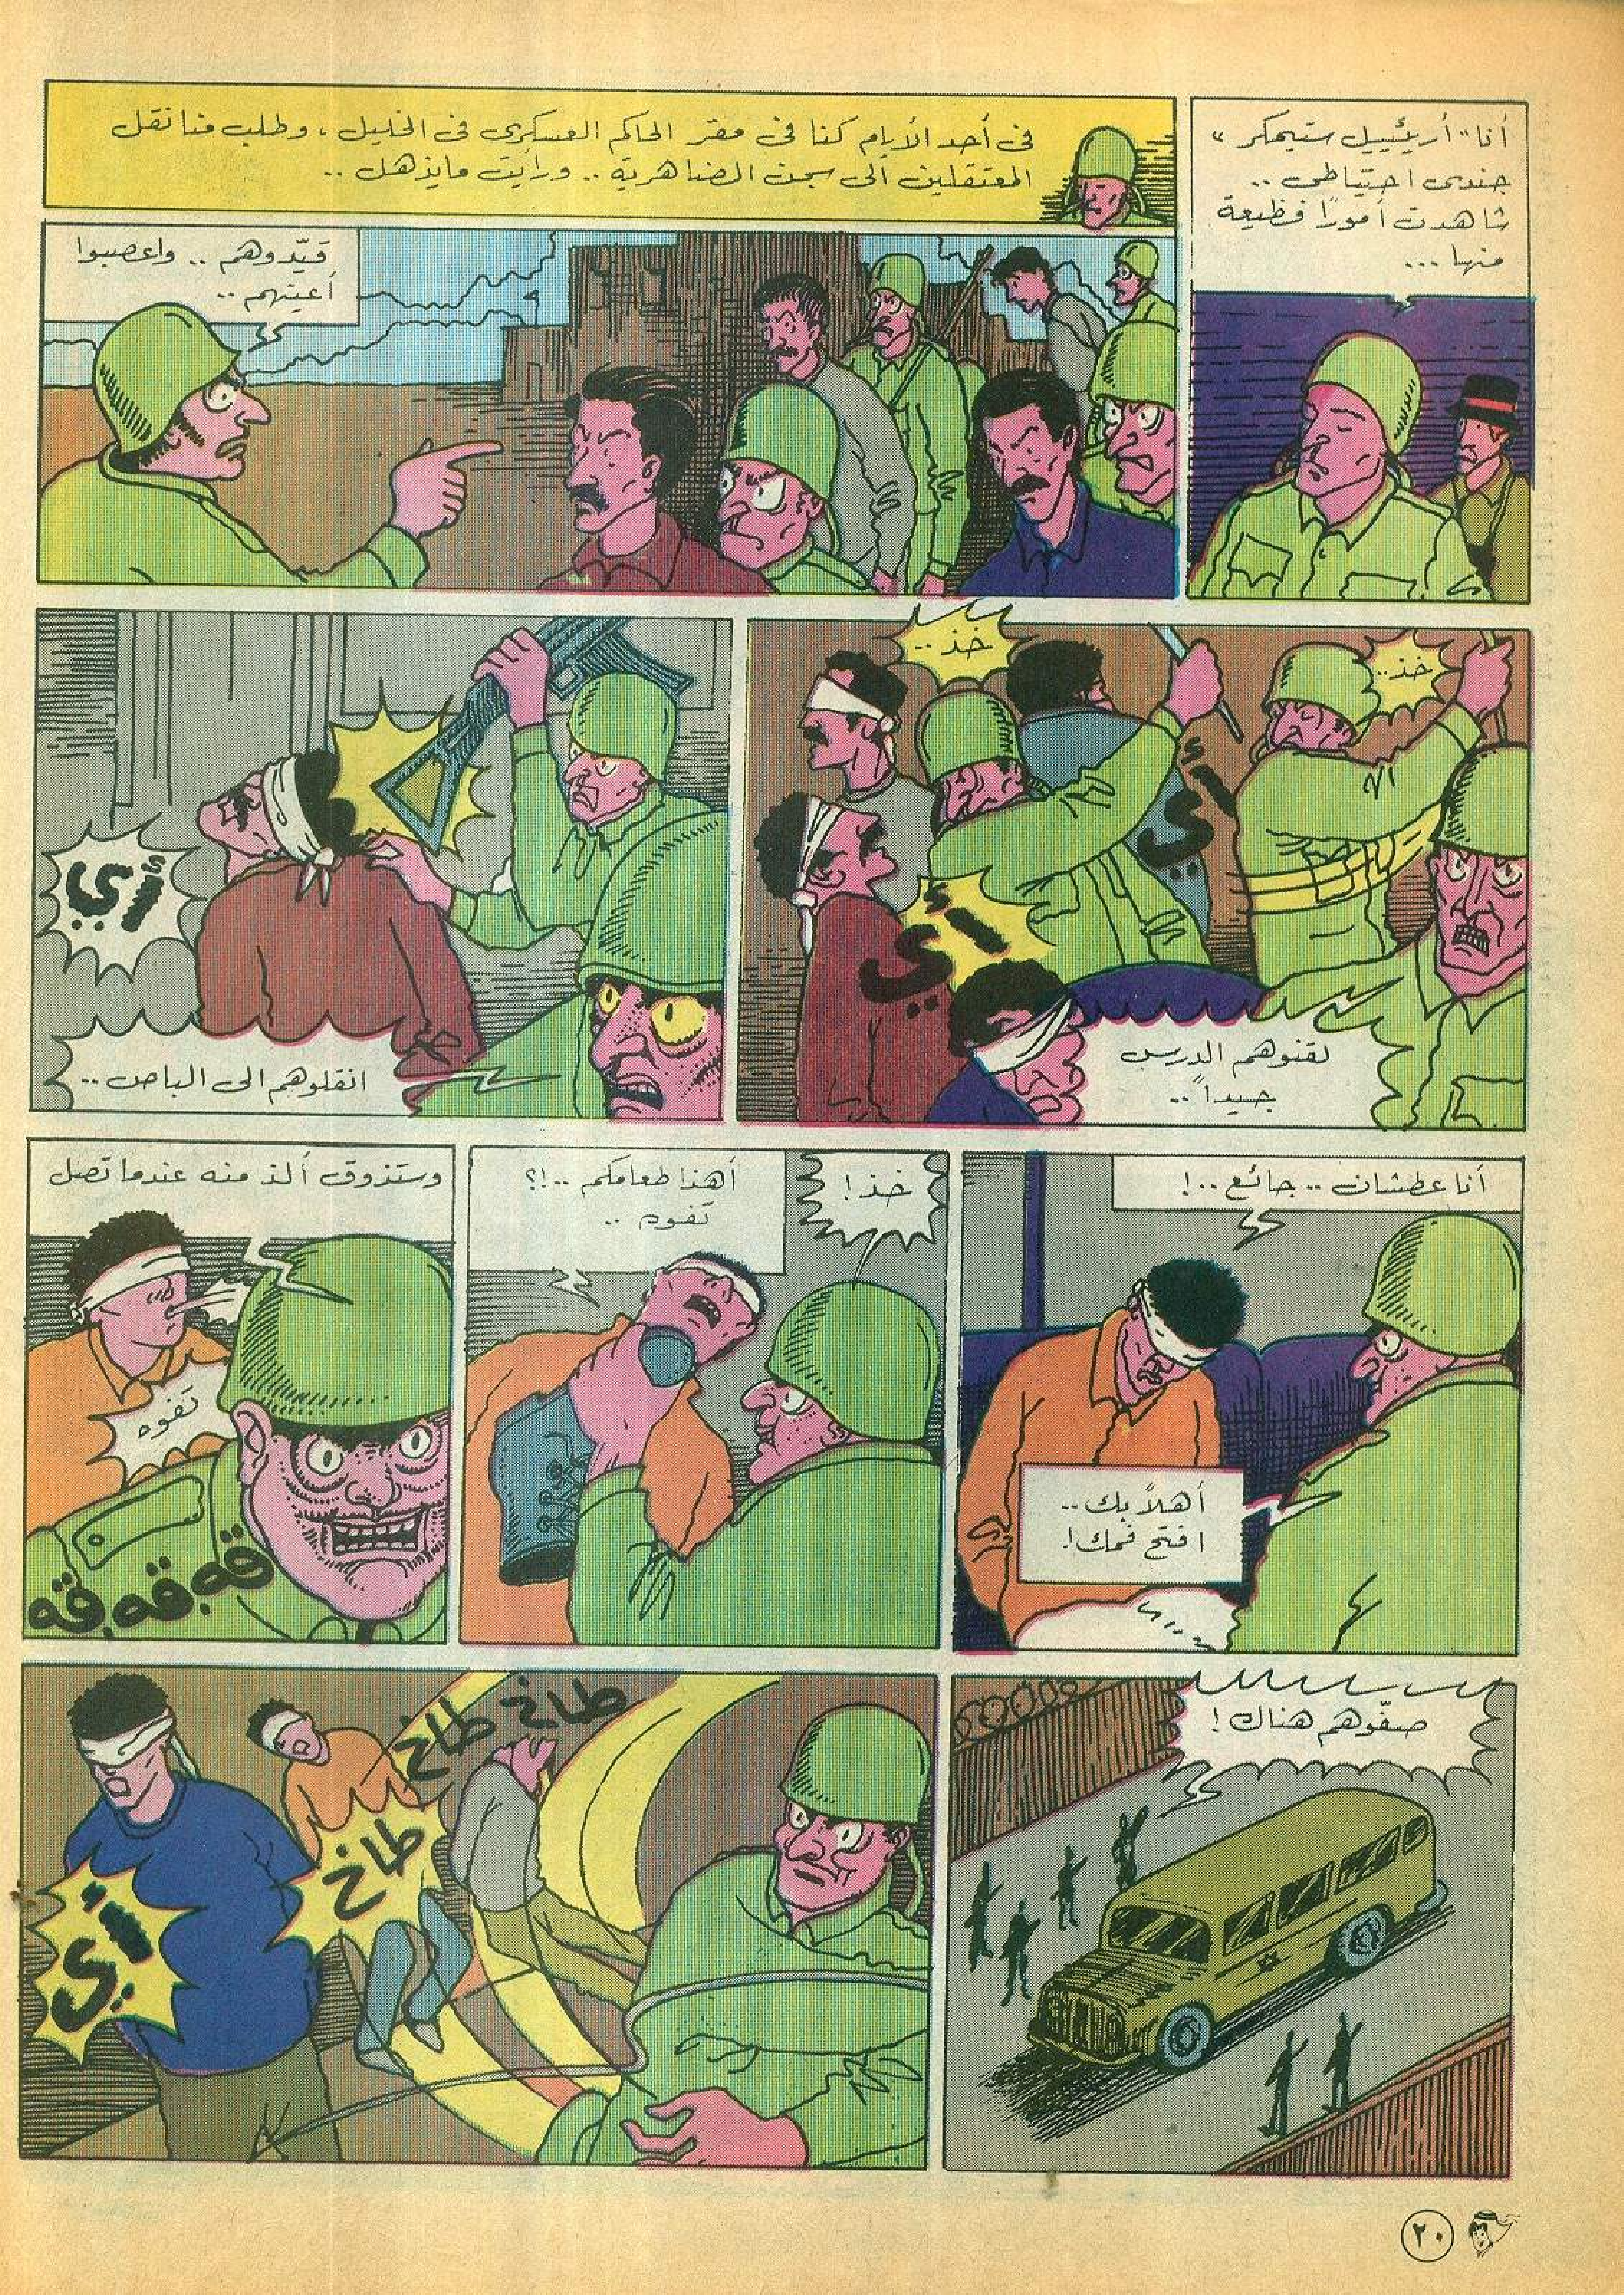 أنا "أريئييل ستيمكر"
جندى احتياطى ..
شاهدت أمورًا فظيعة
منها ...
فى أحد الأيام كنا فى مقر الحاكم العسكرى فى الخليل ، وطلب منا نقل
المعتقلين الى سجن الضاهرية .. ورأيت مايذهل ..
قيّدوهم .. واعصبوا
أعينهم ..
خذ ..
خذ ..
أي
أي
لقنوهم الدرس
جيداً ..
أي
انقلوهم الى الباص ..
أنا عطشان .. جائع ..!
أهلاً بك ..
افتح فمك !
خذ !
أهذا طعامكم ..!؟
تفوه ..
وستذوق ألذ منه عندما تصل
تفوه
قه.قه.قه
صفّوهم هناك !
طاخ
طاخ
طاخ
أي
٢٠